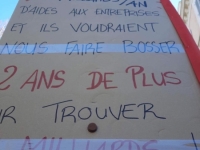 D'AIDES AUX ENTREPRISES
ET ILS VOUDRAIENT
NOUS FAIRE BOSSER
2 ANS DE PLUS
TROUVER
MILLIARDS